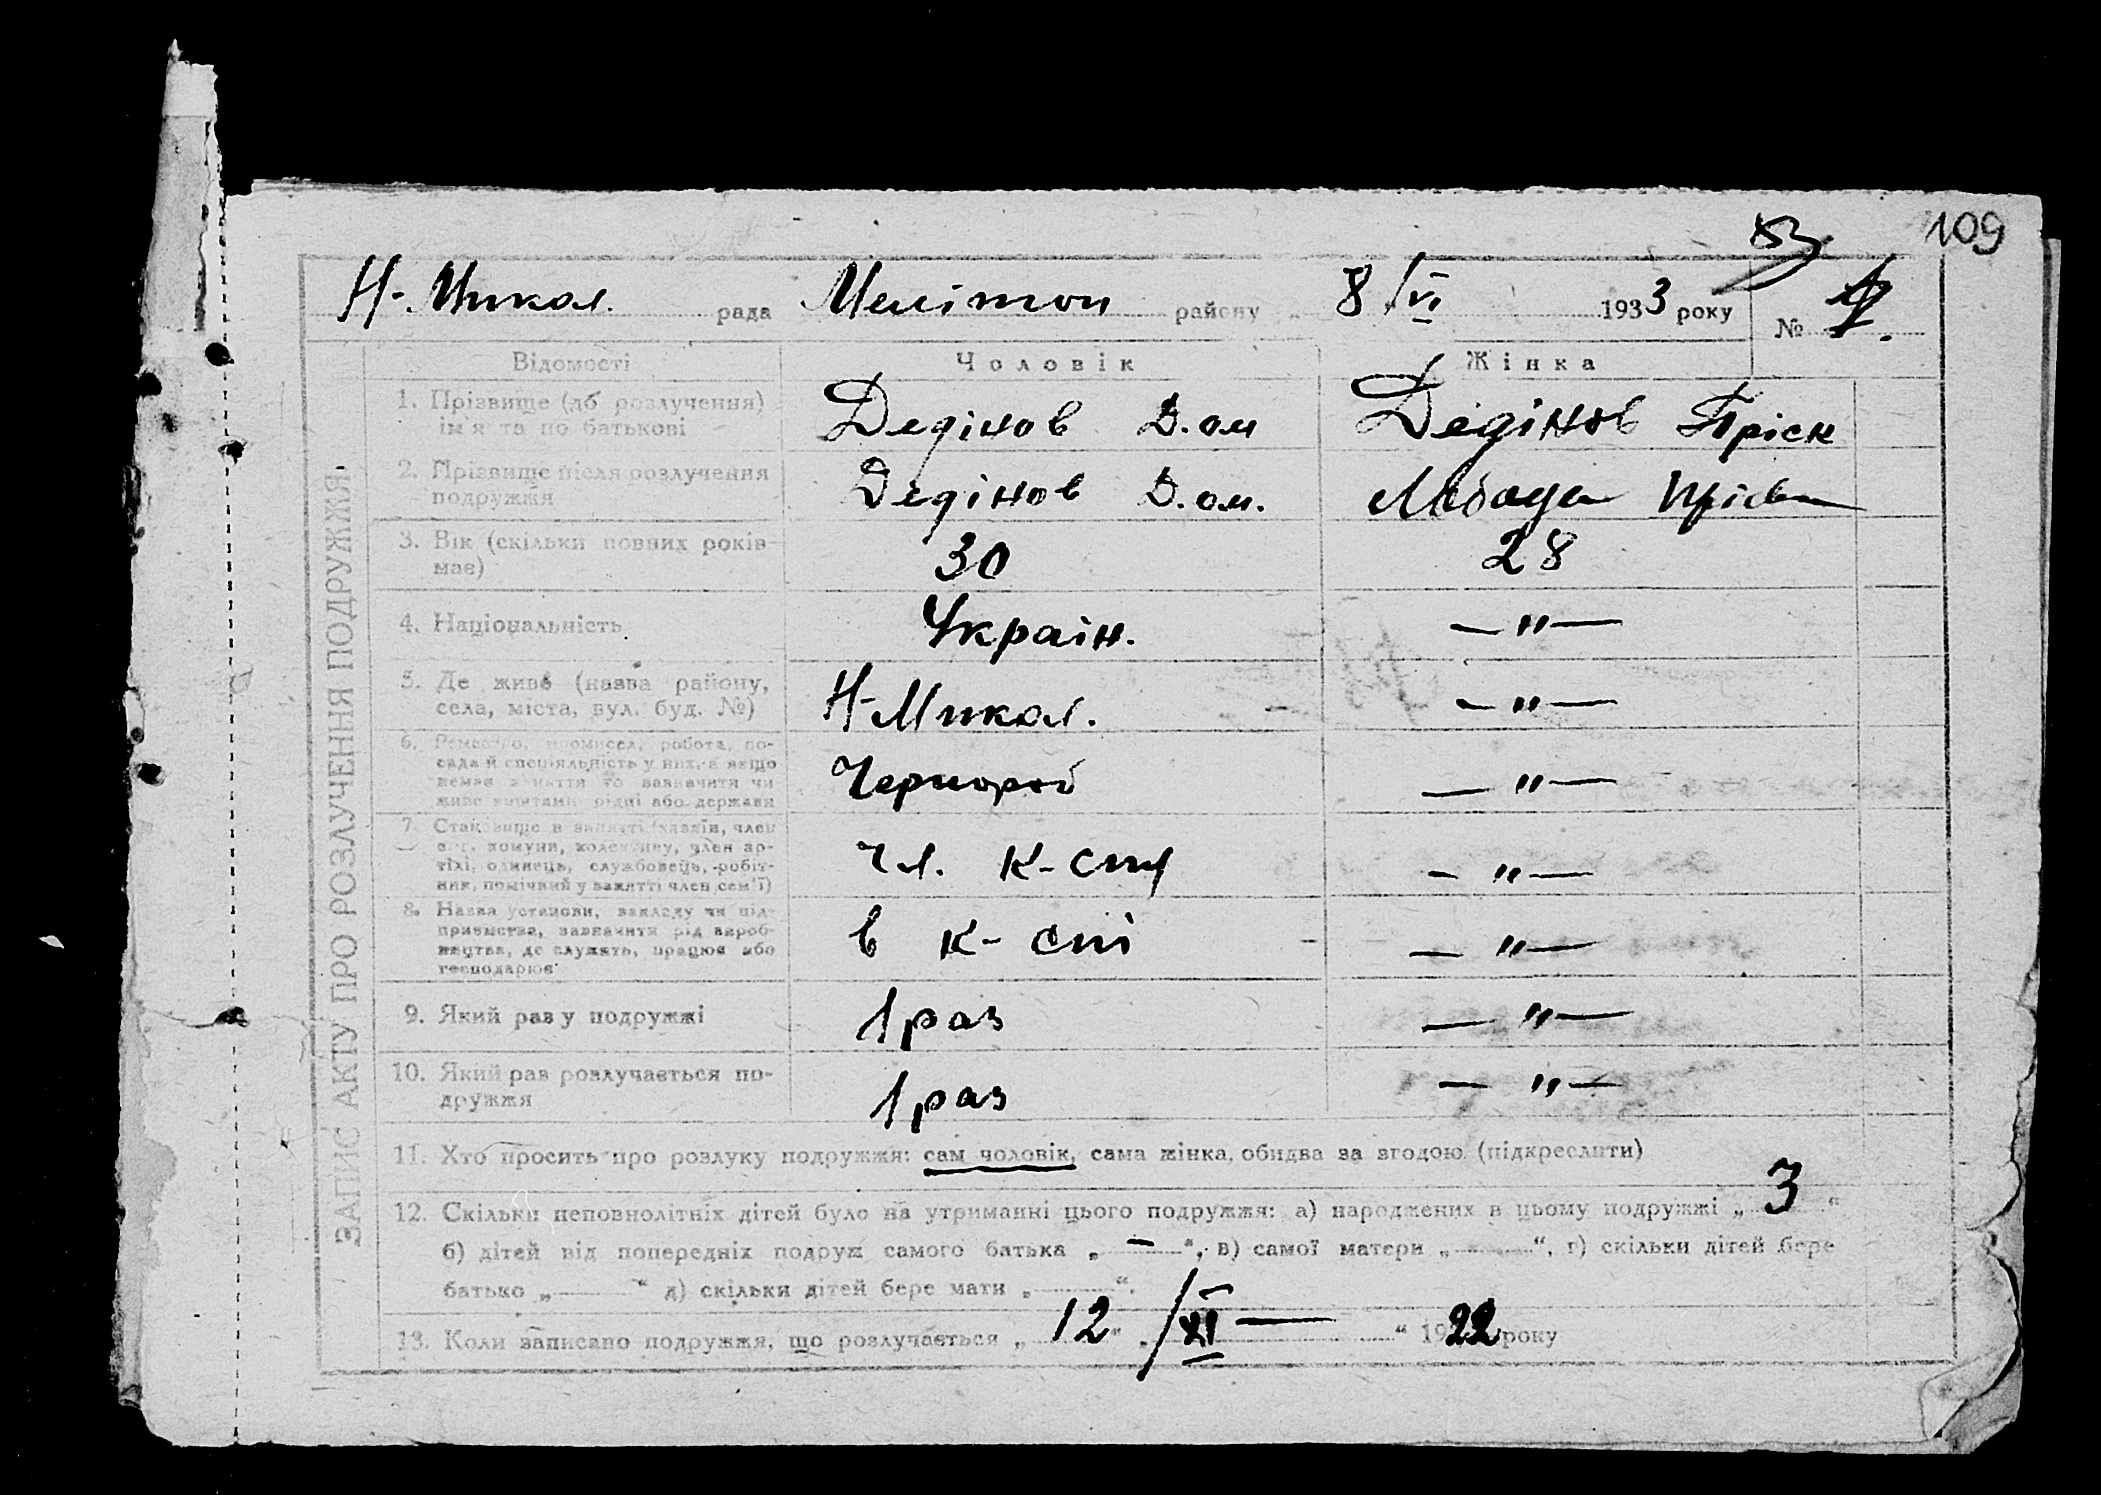 109
53
Н-Микол. рада Меліточ району 8/VI 1933 року № 4.
Відомості Чоловік Жінка
ЗАПИС АКТУ ПРО РОЗЛУЧЕННЯ ПОДРУЖЖЯ.
1. Прізвище (до розлучення) Дедінов Д.ом Дедінов Пріск
ім'я та по батькові
2. Прізвище після розлучення Дедінов Д.ом. Лебода Пріс
подружжя
3. Вік (скільки повних років 30 28
має)
4. Національність Украін. — " —
5. Де живе (назва району, Н-Микол. — " —
села, міста, вул. буд. №)
6. Ремество, промисел, робота, по- Чернороб — " —
сада й спеціяльність у них, а якщо
немає заняття то зазначити чи
живе коштами рідні або держави
7. Становище в занятті (хазяїн, член чл. к-спу — " —
арт. комуни, колективу, член ар-
тілі, одинець, службовець, робіт-
ник, помічний у занятті член сем'ї)
8. Назва установи, закладу чи під- в к-спі — " —
приємства, зазначити рід вироб-
ництва, де служить, працює або
господарює
9. Який раз у подружжі 1 раз — " —
10. Який раз розлучається по- 1 раз — " —
дружжя
11. Хто просить про розлуку подружжя: сам чоловік, сама жінка, обидва за згодою (підкреслити)
12. Скільки неповнолітніх дітей було на утриманні цього подружжя: а) народжених в цьому подружжі „ 3 “
б) дітей від попередніх подруж самого батька „ — “, в) самої матери „ “, г) скільки дітей бере
батько „ “ д) скільки дітей бере мати „ “.
13. Коли записано подружжя, що розлучається „ 12 “ /XI — “ 1922 року